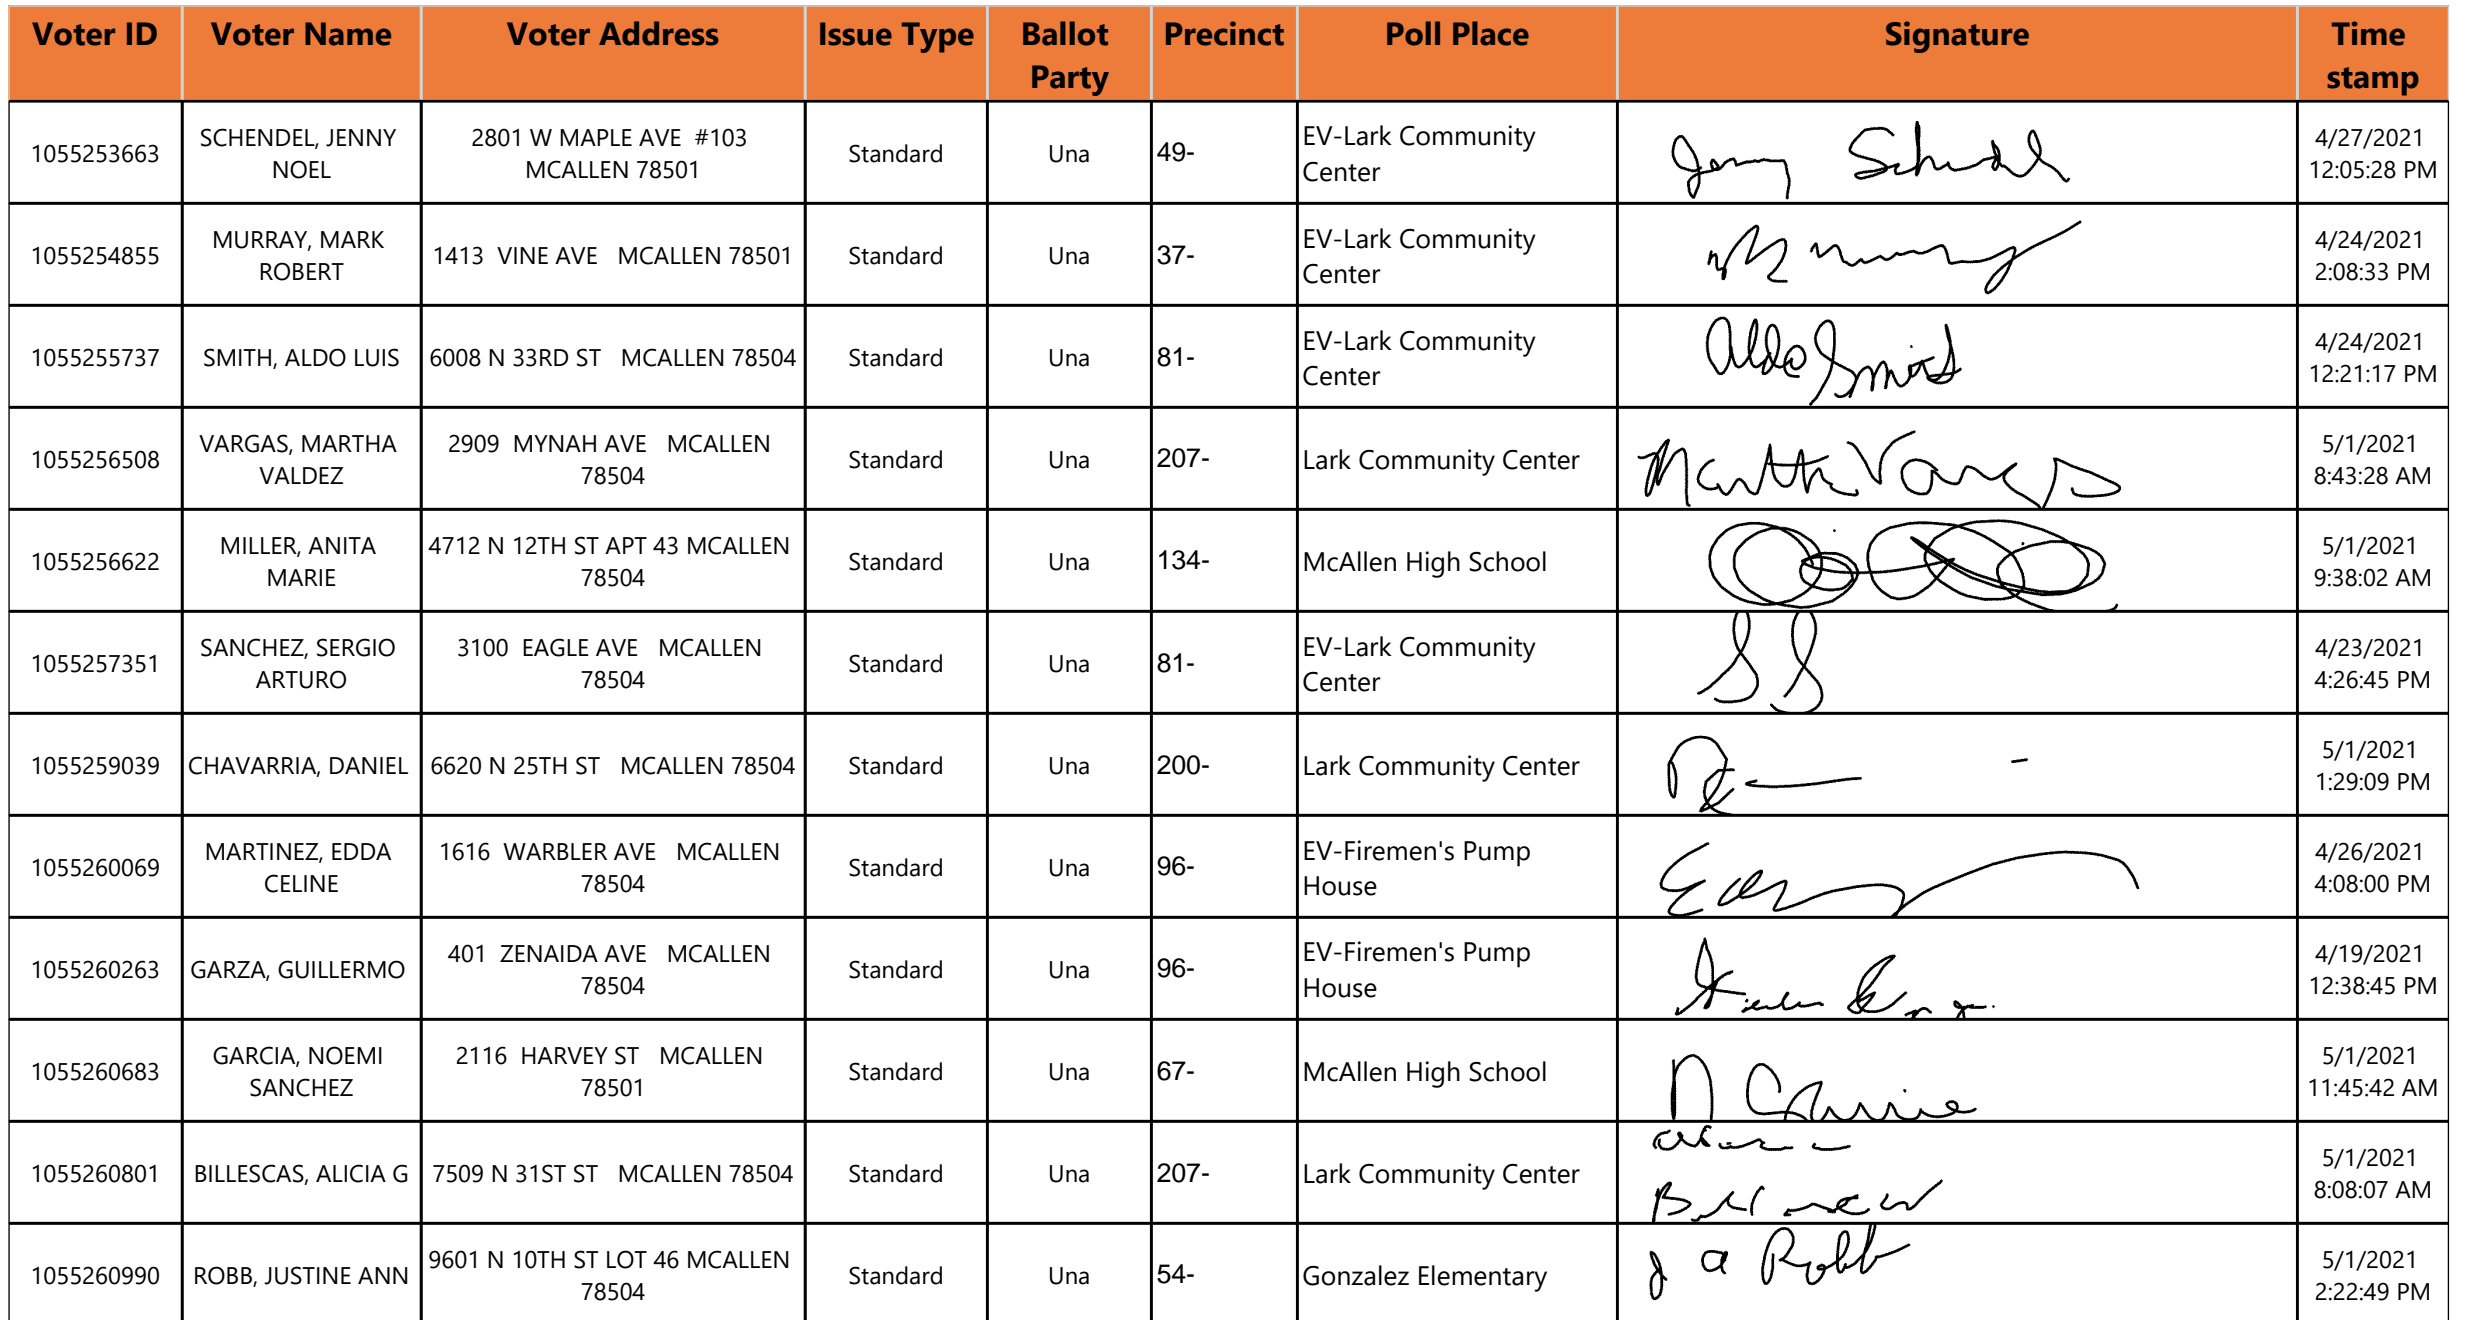 Voter ID Voter Name Voter Address Issue Type Ballot Party Precinct Poll Place Signature Time stamp
1055253663 SCHENDEL, JENNY NOEL 2801 W MAPLE AVE #103 MCALLEN 78501 Standard Una 49- EV-Lark Community Center Jenny Schendel 4/27/2021 12:05:28 PM
1055254855 MURRAY, MARK ROBERT 1413 VINE AVE MCALLEN 78501 Standard Una 37- EV-Lark Community Center M Murray 4/24/2021 2:08:33 PM
1055255737 SMITH, ALDO LUIS 6008 N 33RD ST MCALLEN 78504 Standard Una 81- EV-Lark Community Center Aldo Smith 4/24/2021 12:21:17 PM
1055256508 VARGAS, MARTHA VALDEZ 2909 MYNAH AVE MCALLEN 78504 Standard Una 207- Lark Community Center Martha Vargas 5/1/2021 8:43:28 AM
1055256622 MILLER, ANITA MARIE 4712 N 12TH ST APT 43 MCALLEN 78504 Standard Una 134- McAllen High School 5/1/2021 9:38:02 AM
1055257351 SANCHEZ, SERGIO ARTURO 3100 EAGLE AVE MCALLEN 78504 Standard Una 81- EV-Lark Community Center S S 4/23/2021 4:26:45 PM
1055259039 CHAVARRIA, DANIEL 6620 N 25TH ST MCALLEN 78504 Standard Una 200- Lark Community Center 5/1/2021 1:29:09 PM
1055260069 MARTINEZ, EDDA CELINE 1616 WARBLER AVE MCALLEN 78504 Standard Una 96- EV-Firemen's Pump House 4/26/2021 4:08:00 PM
1055260263 GARZA, GUILLERMO 401 ZENAIDA AVE MCALLEN 78504 Standard Una 96- EV-Firemen's Pump House 4/19/2021 12:38:45 PM
1055260683 GARCIA, NOEMI SANCHEZ 2116 HARVEY ST MCALLEN 78501 Standard Una 67- McAllen High School 5/1/2021 11:45:42 AM
1055260801 BILLESCAS, ALICIA G 7509 N 31ST ST MCALLEN 78504 Standard Una 207- Lark Community Center 5/1/2021 8:08:07 AM
1055260990 ROBB, JUSTINE ANN 9601 N 10TH ST LOT 46 MCALLEN 78504 Standard Una 54- Gonzalez Elementary J a Robb 5/1/2021 2:22:49 PM